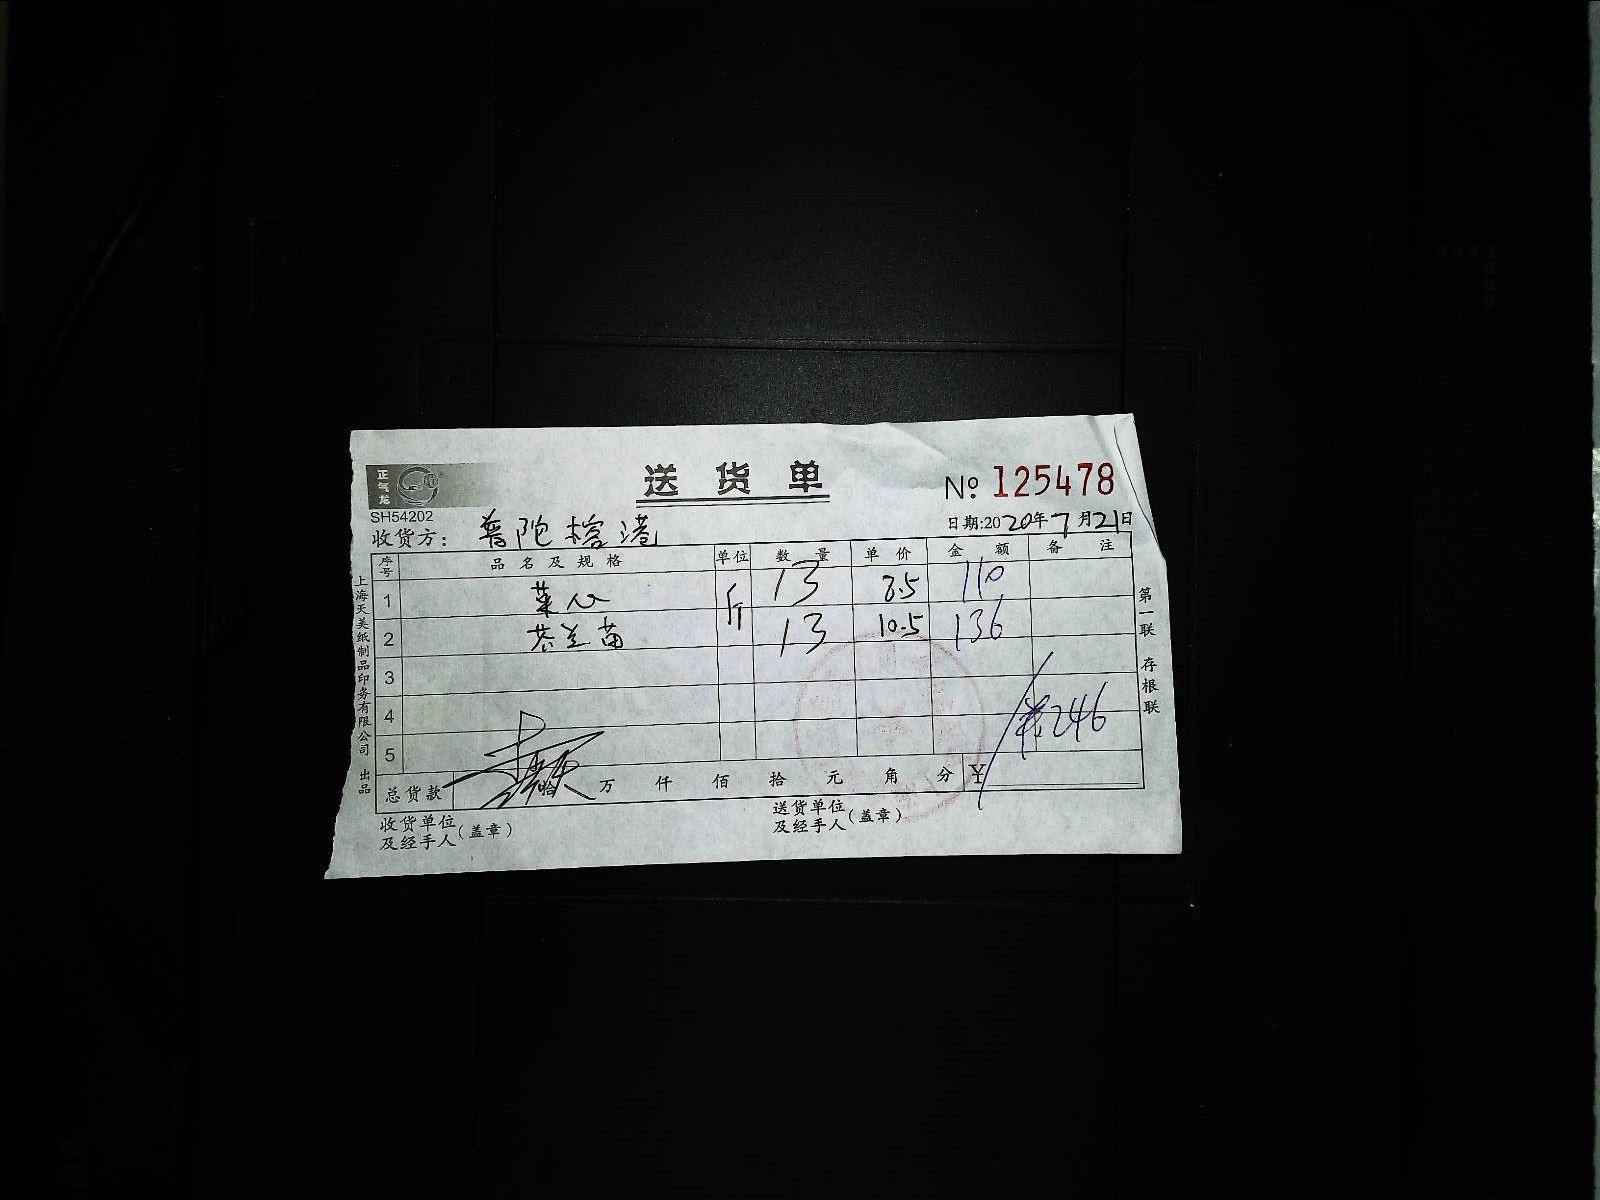 正气龙
送货单
№ 125478
SH54202
收货方: 普陀榕港
日期:2020年7月21日
序号 品名及规格 单位 数量 单价 金额 备注
1 菜心 斤 13 8.5 110
2 芥兰苗 13 10.5 136
3
4
5
共:246
总货款 万 仟 佰 拾 元 角 分 ¥
收货单位及经手人(盖章)
送货单位及经手人(盖章)
上海天美纸制品印务有限公司 出品
第一联 存根联